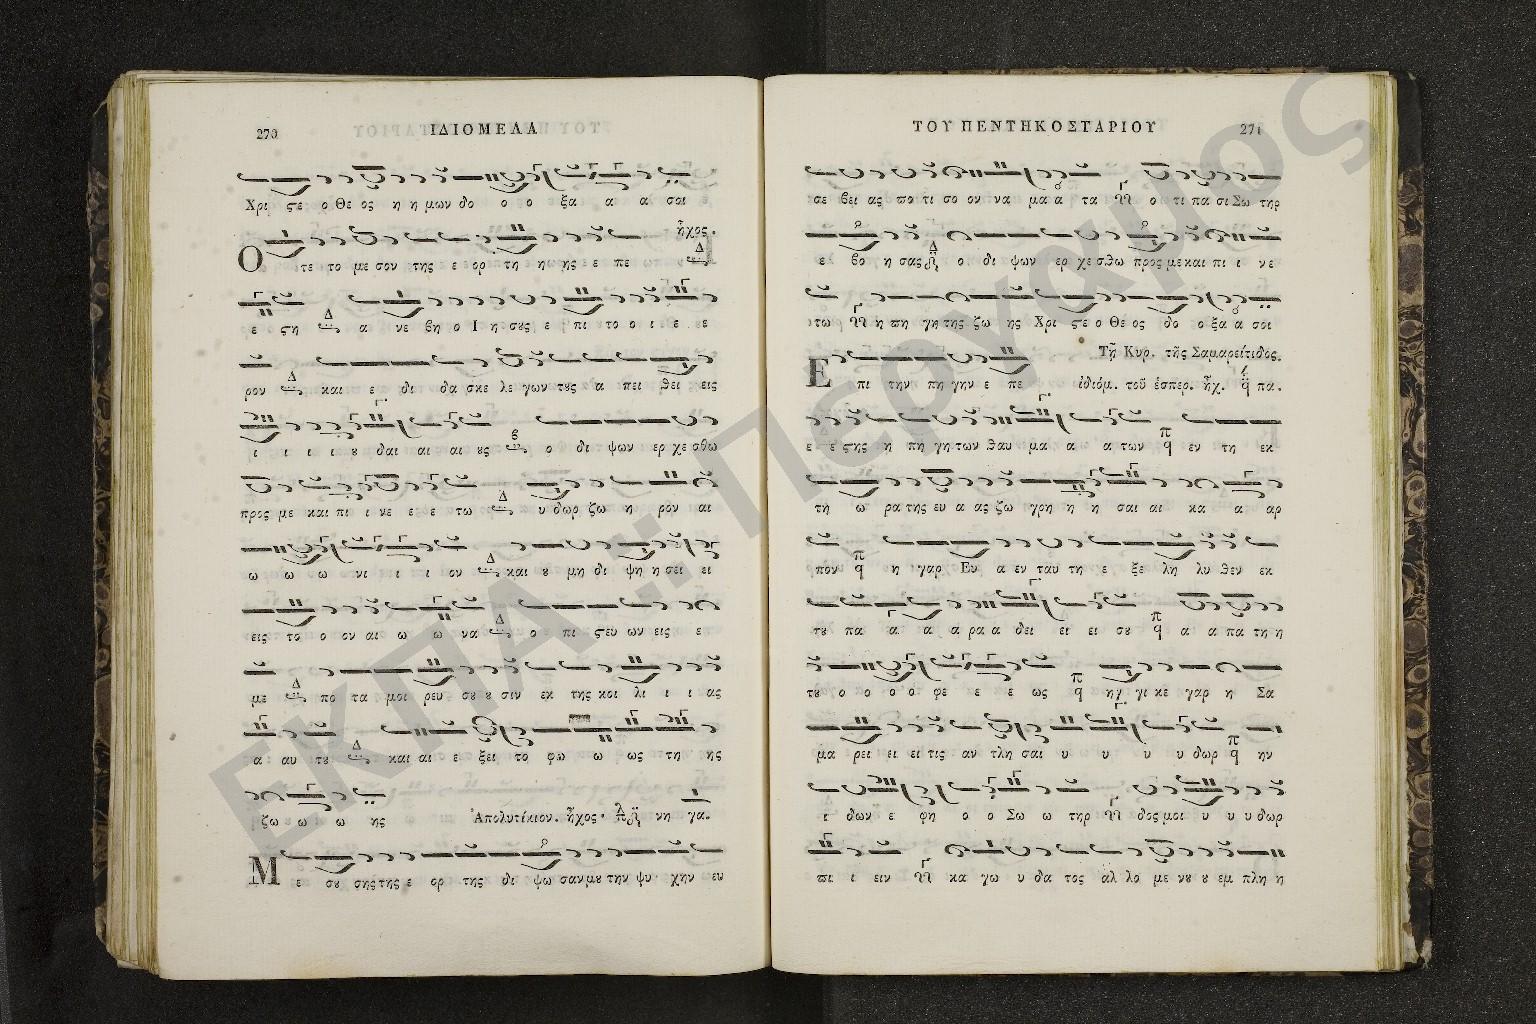 270 ΙΔΙΟΜΕΛΑ
Χρι ϛε ο Θε ος η η μων δο ο ο ξα α α σοι ε
ἦχος. Δ
Ο τε το με σον της ε ορ τη η ης ε πε
ε ϛη Δ α νε βη ο Ι η σους ε ι πι το ο ι ε ε
ρον Δ και ε δι δα σκε λε γων τους α πει θει εις
ι ι ι ι ου δαι αι αι ους β ο δι ψων ερ χε σθω
προς με και πι ι νε ε ε τω Δ υ δωρ ζω η ρον αι
ω ω ω νι ι ι ον Δ και ου μη δι ψη η σει ει
εις το ο ον αι ω ω να Δ ο πι ϛευ ων εις ε
με Δ πο τα μοι ρευ σου ου σιν εκ της κοι λι ι ι ας
α αυ του Δ και αι ε ξει το φω ω ως τη ης
ζω ω ω ης Ἀπολυτίκιον. ἦχος νη γα.
Με σου σης της ε ορ της δι ψω σαν μου την ψυ χην ευ
ΤΟΥ ΠΕΝΤΗΚΟΣΤΑΡΙΟΥ 271
σε βει ας πο τι σο ον να μα α τα ο τι πα σι Σω τηρ
ε βο η σας Δ ο δι ψων ερ χε σθω προς με και πι ι νε
τω η πη γη της ζω ης Χρι ϛε ο Θε ος δο ο ξα α σοι
Τῇ Κυρ. τῆς Σαμαρείτιδος.
Ε πι την πη γην ε πε ἰδιόμ. τοῦ ἑσπερ. ἦχ. πα.
ε ε ϛης η πη γη των θαυ μα α α των π εν τη εκ
τη ω ρα της ευ α ας ζω γρη η η σαι αι κα α αρ
πον π η γαρ Ευ α εν ταυ τη ε ξε λη λυ θεν εκ
του πα α α α ρα α δει ει ει σου π α α πα τη η
του ο ο ο ο φε ε ε ως π ηγ γι κε γαρ η Σα
μα ρει ει ει τις αν τλη σαι υ υ υ υ δωρ π ην
ι δων ε φη ο ο Σω ω τηρ δος μοι υ υ υ δωρ
πι ι ειν κα γω υ δα τος αλ λο με νου ου εμ πλη η
ΕΚΠΑ :: Πέργαμος